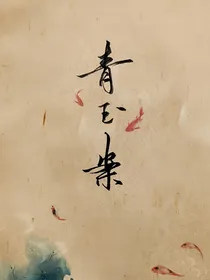 青玉案